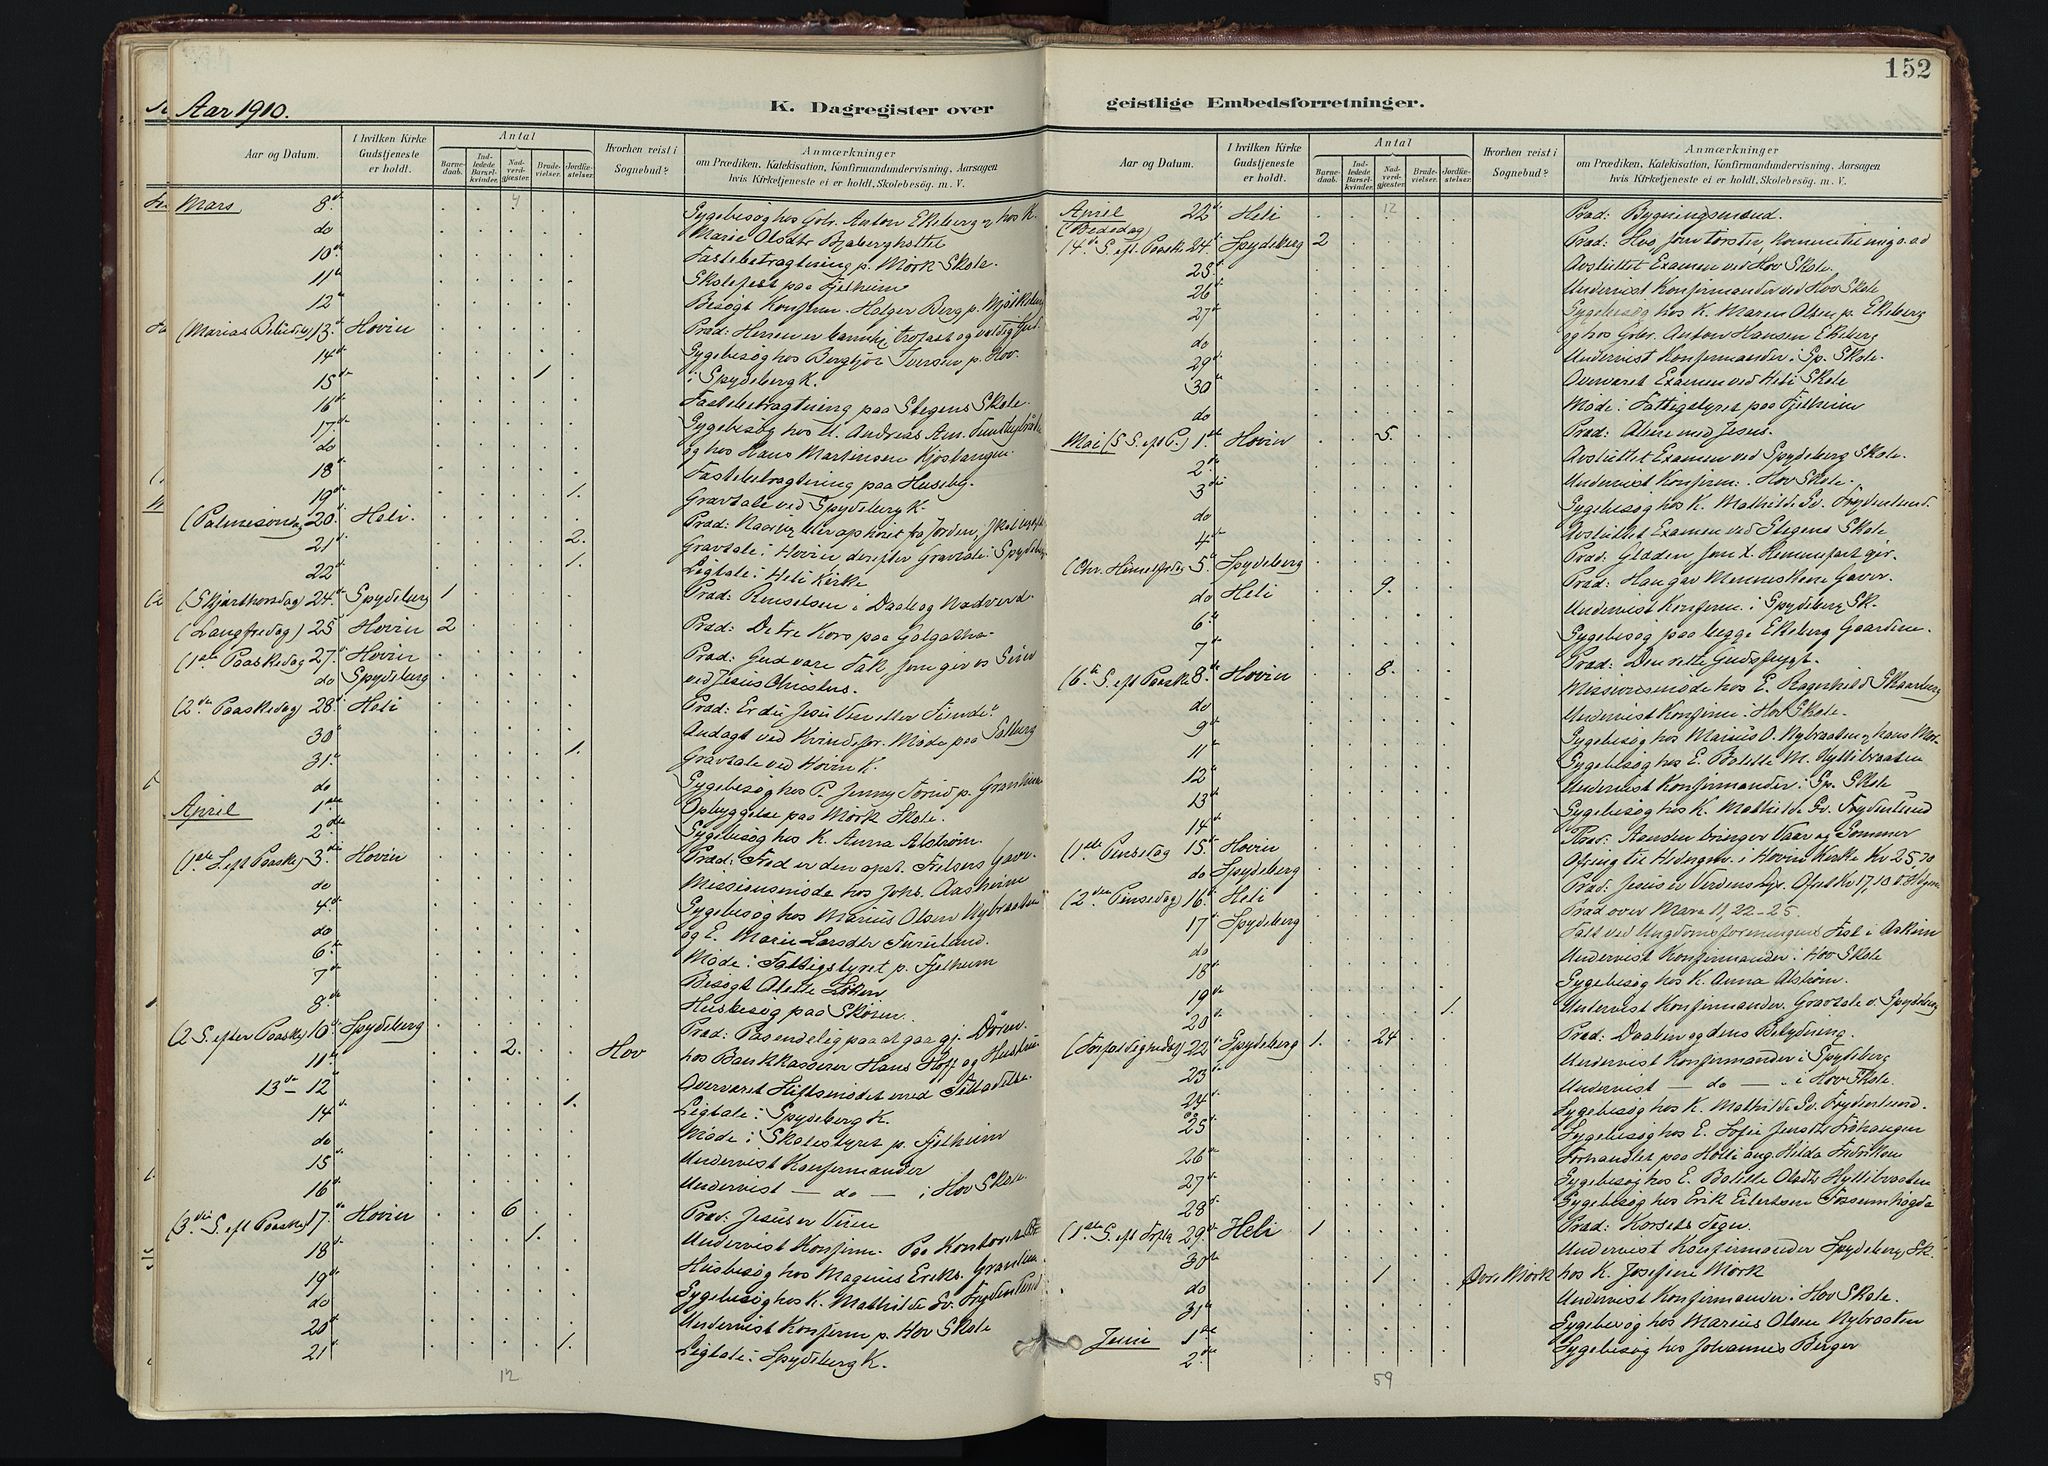 152
Aar 1910.
K. Dagregister over geistlige Embedsforretninger.
Aar og Datum.
I hvilken Kirke Gudstjeneste er holdt.
Antal
Barne-daab.
Ind-ledede Barsel-kvinder.
Nad-verd-gjæster.
Brude-vielser.
Jordfæ-stelser.
Hvorhen reist i Sognebud?
Anmærkninger
om Prædiken, Katekisation, Konfirmandundervisning, Aarsagen
hvis Kirketjeneste ei er holdt, Skolebesøg. m. V.
Mars 8de 4 Sygebesøg hos Gbr. Anton Ekeberg og hos K.
do Marie Olsdtr Bjaberghottet
10de Fastebetragtning p. Mørk Skole.
11te Skolefest paa Fjelheim
12te Besøgt Konfirm. Holger Berg p.
(Marias Bebudlse) 13de Hovin Præd: Herren er
14de Sygebesøg hos Iversen p. Hov
15de 1 i Spydeberg K.
16de Fastebetragtning paa Stegens Skole.
17de Sygebesøg hos Andreas
do og hos Hans Martensen Kjøstangen
18 Fastebetragtning paa Huseby.
19de 1. Gravtale ved Spydeberg K.
(Palmesøndag 20de Heli. Præd: Naar jeg blir ophøiet fra Jorden,
21de 2. Gravtale i Hovin derefter Gravtale i Spydeberg
22de 1. Ligtale i Heli Kirke
(Skjærthorsdag) 24de Spydeberg 1 Præd: Renselsen i Daab og Nadverd.
(Langfredag) 25de Hovin 2 Præd: De tre Kors paa Golgatha.
(1ste Paaskedag 27de Hovin Præd: Gud være Tak som gir os Seier
do Spydeberg ved Jesus Christus.
(2den Paaskedag) 28de Heli Præd: Er du Jesu Ven eller Fiende?
30te Andagt ved Kvindefor. Møde paa Solberg
31te 1. Gravtale ved Hovin K.
do Sygebesøg hos P. Jenny Torud p. Granheim
April 1ste Opbyggelse paa Mørk Skole.
2den Sygebesøg hos K. Anna Alstrøm.
(1ste S. eft Paaske) 3die Hovin Præd: Fred er den opst. Frelsers Gave.
do Missionsmøde hos Johs. Aasheim
4de Sygebesøg hos Marius Olsen Nybraaten
do og E. Marie Larsdtr Furulund.
6te Møde i Fattigstyret p. Fjelheim
7de Besøgt Olette Løken
8de Husbesøg paa Skøien.
(2 S. efter Paaske) 10de Spydeberg Præd: Pas endelig paa at gaa gj. Døren.
11te 2. Hov hos Bankkasserer Hans Hoff og Hustru
13de – 12 Overværet Stiftsmødet med
14de 1. Ligtale i Spydeberg K.
do Møde i Skolestyret p. Fjelheim
15 Undervist Konfirmander
16de Undervist — do — i Hov Skole.
(3die S. eft Paaske) 17de Hovin 6 Præd: Jesus er Veien
18 1. Undervist Konfirm. Paa Kontoret
19de Husbesøg hos Magnus Eriks. Granlien
do Sygebesøg hos K. Mathilde Sv. Frydenlund
20de Undervist Konfirm p. Hov Skole
21de 1. Ligtale i Spydeberg K.
12
Aar og Datum.
I hvilken Kirke Gudstjeneste er holdt.
Antal
Barne-daab.
Ind-ledede Barsel-kvinder.
Nad-verd-gjæster.
Brude-vielser.
Jordfæ-stelser.
Hvorhen reist i Sognebud?
Anmærkninger
om Prædiken, Katekisation, Konfirmandundervisning, Aarsagen
hvis Kirketjeneste ei er holdt, Skolebesøg. m. V.
April 22de Heli 12 Præd: Bygningsmænd.
(Bededag)
(4de S. eft. Paaske 24de Spydeberg 2 Præd: Hvo som tørster, komme til mig o.a.d
25de Avsluttet Examen ved Hov Skole.
26de Undervist Konfirmander ved Hov Skole
27de Sygebesøg hos K. Maren Olsen p. Ekeberg
do og hos Gbr. Anton Hansen Ekeberg
29de Undervist Konfirmander i Sp. Skole.
30te Overværet Examen ved Heli Skole
do Møde i Fattigstyret paa Fjelheim
Mai (5 S. eft P.) 1ste Hovin 5. Præd: Alene med Jesus.
2den Avsluttet Examen ved Spydeberg Skole.
3die Undervist Konfirm. i Hov Skole.
do Sygebesøg hos K. Mathilde Sv. Frydenlund.
4de Avsluttet Examen ved Stegens Skole
(Chr. Himmelfrtsdag 5te Spydeberg Præd: Glæden som X. Himmelfart gir.
do Heli 9. Præd: Han gav Menneskene Gaver.
6te Undervist Konfirm. i Spydeberg Sk.
7de Sygebesøg paa begge Ekeberg Gaardene.
(6te S. eft Paaske 8de Hovin 8. Præd: Den rette Gudsfrygt.
do Missionsmøde hos E. Ragnhild Skaarberg
9de Undervist Konfirm. i Hov Skole.
11te Sygebesøg hos Marius O. Nybraaten og hans Mor
12te Sygebesøg hos E. Bolette M. Hyllibraaten
13de Undervist Konfirmander i Sp. Skole
14de Sygebesøg hos K. Mathilde Sv. Frydenlund
(1ste Pinsedag 15de Hovin Præd: Aanden bringer Vaar og Sommer
do Spydeberg Ofring til Hedingem. i Hovin Kirke Kr 25,30
(2den Pinsedag) 16de Heli Præd: Jesus er Verdens Lys. Ofret Kr 17,10
17de Spydeberg Præd over Mark 11, 22-25.
do Talt ved Ungdomsforeningens Fest i Askim
18de Undervist Konfirmander i Hov Skole
19de Sygebesøg hos K. Anna Alstrøm
20de 1. Undervist Konfirmander. Gravtale v. Spydeberg
(Trefoldighedsf) 22de Spydeberg 1. 24 Præd: Daaben og dens Betydning.
23de Undervist Konfirmander i Spydeberg
24de Undervist — do — i Hov Skole.
25de Sygebesøg hos K. Mathilde Sv. Frydenlund.
Sygebesøg hos E. Sofie Jensdtr
26de Forhandlet paa Holli ang. Hilda Fredriksen
27de Sygebesøg hos E. Bolette Olsdtr Hyllibraaten
28de Sygebesøg hos Erik Eilertsen Fossumhøgda
(1ste S. eft Trefta 29de Heli 1 Præd: Korsets Tegn.
30te Undervist Konfirmander Spydeberg Sk.
do 1 Øvre Mørk hos K. Josefine Mørk
31te Undervist Konfirmander i Hov Skole.
Juni 1ste Sygebesøg hos Marius Olsen Nybraaten
2den Sygebesøg hos Johannes Berger
59